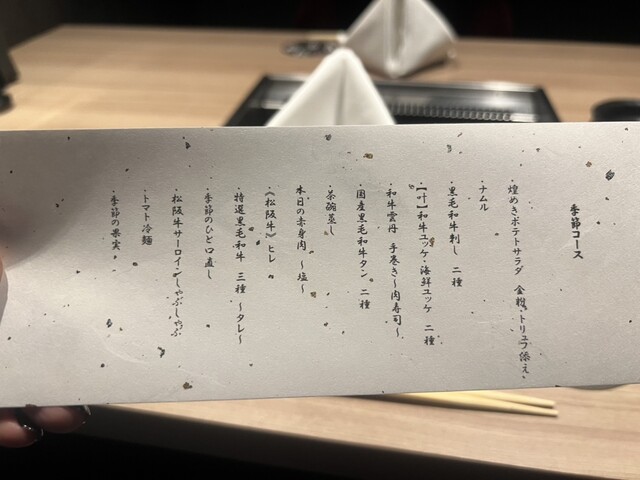 季節コース
・煌めきポテトサラダ 金粉、トリュフ添え
・ナムル
・黒毛和牛刺し 二種
・【叶】和牛ユッケ・海鮮ユッケ 二種
・和牛雲丹 手巻き～肉寿司～
・国産黒毛和牛タン 二種
・茶碗蒸し
・本日の赤身肉 ～塩～
・《松阪牛》ヒレ
・特選黒毛和牛 三種 ～タレ～
・季節のひと口直し
・松阪牛サーロインしゃぶしゃぶ
・トマト冷麺
・季節の果実